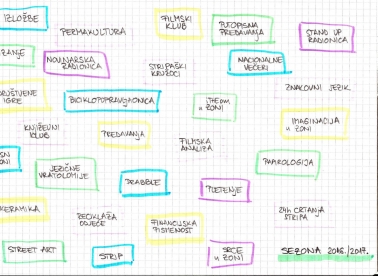 IZLOŽBE
PERMAKULTURA
FILMSKI
KLUB
PUTOPISNA
PREDAVANJA
STAND UP
RADIONICA
NOVINARSKA
RADIONICA
STRIPAŠKI
KRUŽOCI
NACIONALNE
VEČERI
ZNAKOVNI JEZIK
DRUŠTVENE
IGRE
BICIKLOPOPRAVLJAONICA
U ZONI
IMAGINACIJA
U ZONI
KNJIŽEVNI
KLUB
PREDAVANJA
FILMSKA
ANALIZA
JEZIČNE
VRATOLOMIJE
DRABBLE
PAPIROLOGIJA
PLETENJE
KERAMIKA
RECIKLAŽA
ODJEĆE
FINANCIJSKA
PISMENOST
24h CRTANJA
STRIPA
STREET ART
STRIP
SRCE
U ZONI
SEZONA 2016./2017.